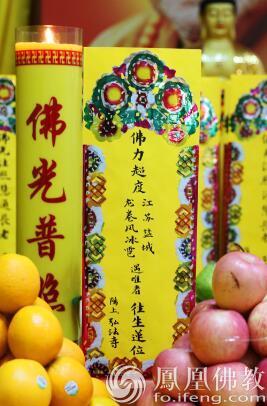 佛光普照
佛力超度
江苏盐城
龙卷风冰雹
遇难者
往生莲位
阳上 弘法寺
鳳凰佛教
fo.ifeng.com